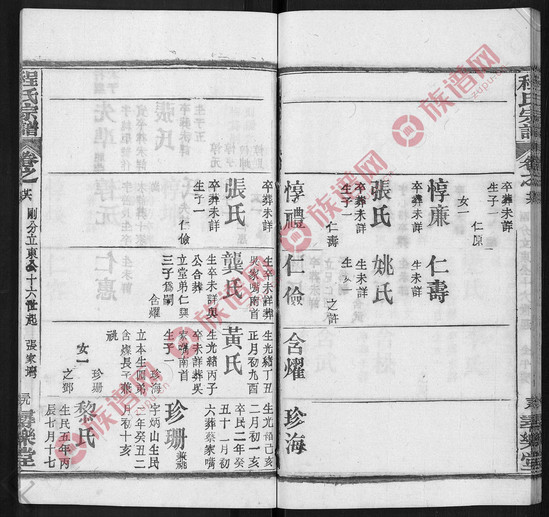 程氏宗譜
卷之
卒葬未詳
生子一
仁原
女一
惇廉
生卒葬未詳
張氏
生卒葬未詳
生子一
仁壽
惇禮
卒葬未詳
張氏
生卒葬未詳
生子一
仁儉
仁壽
生未詳
姚氏
生未詳
之許
仁儉
生卒未詳葬
吳家嘴南首
龔氏
生卒未詳吳
公合葬
立堂弟仁興
三子為嗣
含燿
含燿
生光緒丁丑
正月初九酉
卒未詳葬吳
家嘴南首
黃氏
生光緒丙子
卒未詳葬吳
立本生胞弟
含燦長子兼
祧
珍海
女一
珍珊
之鄧
珍海
生光緒己亥
二月初一亥
卒民二年癸
丑十一月初
六葬蔡家嘴
珍珊
兼祧
字炳山生民
二年癸丑二
月初十亥
黎氏
生民五年丙
辰七月十七
程氏宗譜
卷之
剛分立東公十六世起
張家灣
尋樂堂
尋樂堂
族谱网
zupu.cn